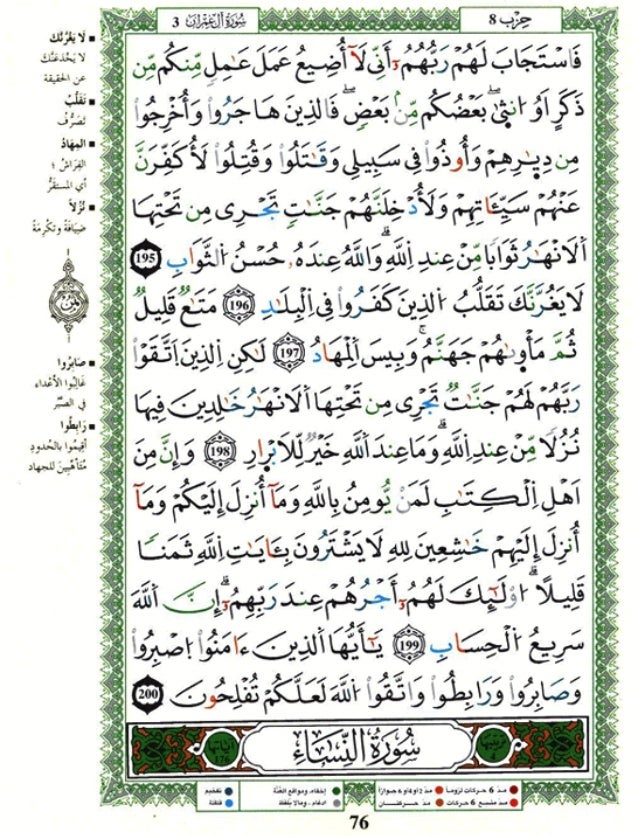 حِزْب 8
سُورَةُ آلِ عِمْرَان 3
فَاسْتَجَابَ لَهُمْ رَبُّهُمُۥٓ أَنِّے لَآ أُضِيعُ عَمَلَ عَٰمِلٖ مِّنكُم مِّن
ذَكَرٍ اَوُ ا۟نث۪يٰۖ بَعْضُكُم مِّنۢ بَعْضٖۖ فَالذِينَ هَاجَرُوا۟ وَأُخْرِجُوا۟
مِن دِيٰ۪رِهِمْ وَأُوذُوا۟ فِے سَبِيلِے وَقَٰتَلُوا۟ وَقُتِلُوا۟ لَأُكَفِّرَنَّ
عَنْهُمْ سَيِّـَٔاتِهِمْ وَلَأُدْخِلَنَّهُمْ جَنَّٰتٖ تَجْرِے مِن تَحْتِهَا
اَلَانْهَٰرُ ثَوَابٗا مِّنْ عِندِ اِ۬للَّهِۗ وَاللَّهُ عِندَهُۥ حُسْنُ اُ۬لثَّوَابِ 195
لَا يَغُرَّنَّكَ تَقَلُّبُ اُ۬لذِينَ كَفَرُوا۟ فِے اِ۬لْبِلَٰدِ 196 مَتَٰعٞ قَلِيلٞ
ثُمَّ مَأْو۪يٰهُمْ جَهَنَّمُۖ وَبِيسَ اَ۬لْمِهَادُ 197 لَٰكِنِ اِ۬لذِينَ اَ۪تَّقَوْا۟
رَبَّهُمْ لَهُمْ جَنَّٰتٞ تَجْرِے مِن تَحْتِهَا اَ۬لَانْهَٰرُ خَٰلِدِينَ فِيهَا
نُزُلٗا مِّنْ عِندِ اِ۬للَّهِۗ وَمَا عِندَ اَ۬للَّهِ خَيْرٞ لِّلَابْر۪ارِ 198 وَإِنَّ مِنَ
اَهْلِ اِ۬لْكِتَٰبِ لَمَنْ يُّومِنُ بِاللَّهِ وَمَآ أُنزِلَ إِلَيْكُمْ وَمَآ
أُنزِلَ إِلَيْهِمْ خَٰشِعِينَ لِلهِ لَا يَشْتَرُونَ بِـَٔايَٰتِ اِ۬للَّهِ ثَمَنٗا
قَلِيلًاۖ ا۟وْلَٰٓئِكَ لَهُمُۥٓ أَجْرُهُمْ عِندَ رَبِّهِمُۥٓۗ إِنَّ اَ۬للَّهَ
سَرِيعُ اُ۬لْحِسَابِ 199 يَٰٓأَيُّهَا اَ۬لذِينَ ءَامَنُوا۟ اُ۪صْبِرُوا۟
وَصَابِرُوا۟ وَرَابِطُوا۟ وَاتَّقُوا۟ اُ۬للَّهَ لَعَلَّكُمْ تُفْلِحُونَ 200
تَرْتِيبُهَا 4
سُورَةُ النِّسَاءِ
آيَاتُهَا 176
لَا يَغُرَّنَّك
لا يَخْدَعَنَّكَ
عن الحقيقة
تَقَلُّبُ
تَصَرُّفُ
المِهَادُ
الفِرَاشُ؛
أي المستقرُّ
نُزُلاً
ضِيَافَةً وتَكْرِمَةً
ثمن
صَابِرُوا
غَالِبُوا الأعْداءَ
في الصَّبْرِ
رَابِطُوا
أقِيمُوا بالحُدودِ
مُتأهِّبينَ للجهاد
مدّ 6 حركات لزوماً
مدّ 2 أو 4 أو 6 جوازاً
إخفاء، ومواقع الغُنَّة
تفخيم
مدّ مشبع 6 حركات
مدّ حركتان
ادغام، وما لا يُلفظ
قلقلة
76